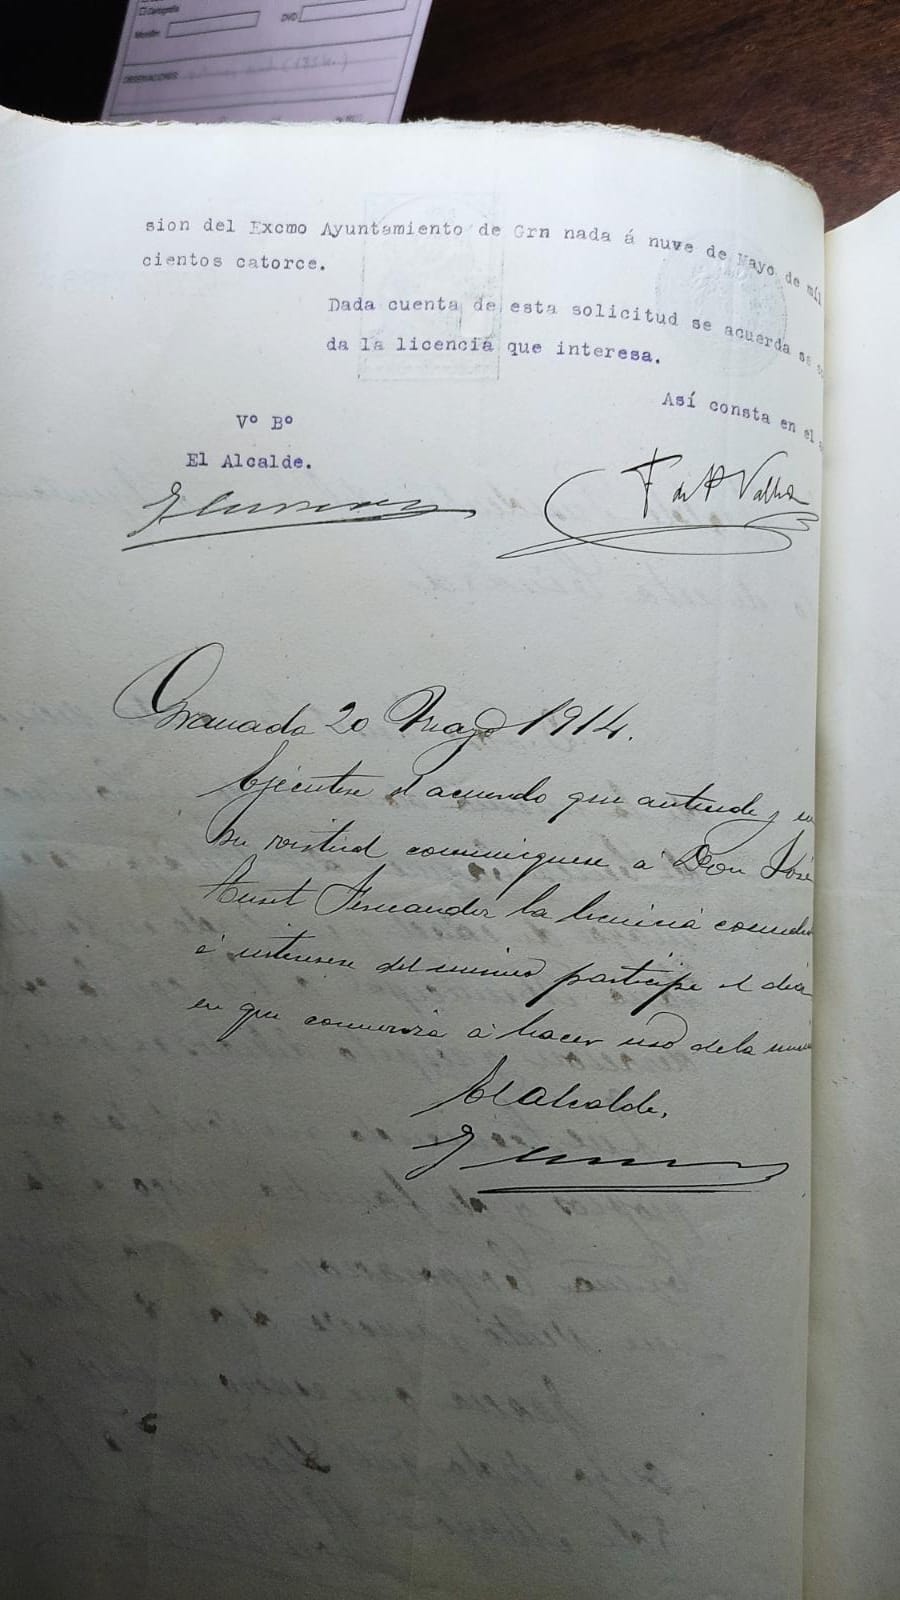 Cartografía
Microfilm
DVD
OBSERVACIONES
sion del Excmo Ayuntamiento de Grn nada á nuve de Mayo de mil
cientos catorce.
Dada cuenta de esta solicitud se acuerda se
da la licencia que interesa.
Así consta en el
Vº Bº
El Alcalde.
F de A Valls
Granada 20 Mayo 1914.
Ejécutese el acuerdo que antecede y en
su virtud comuniquese á Don José
Fernandez la licencia
é interesese del mismo participe el dia
en que comienza á hacer uso de la
El Alcalde,